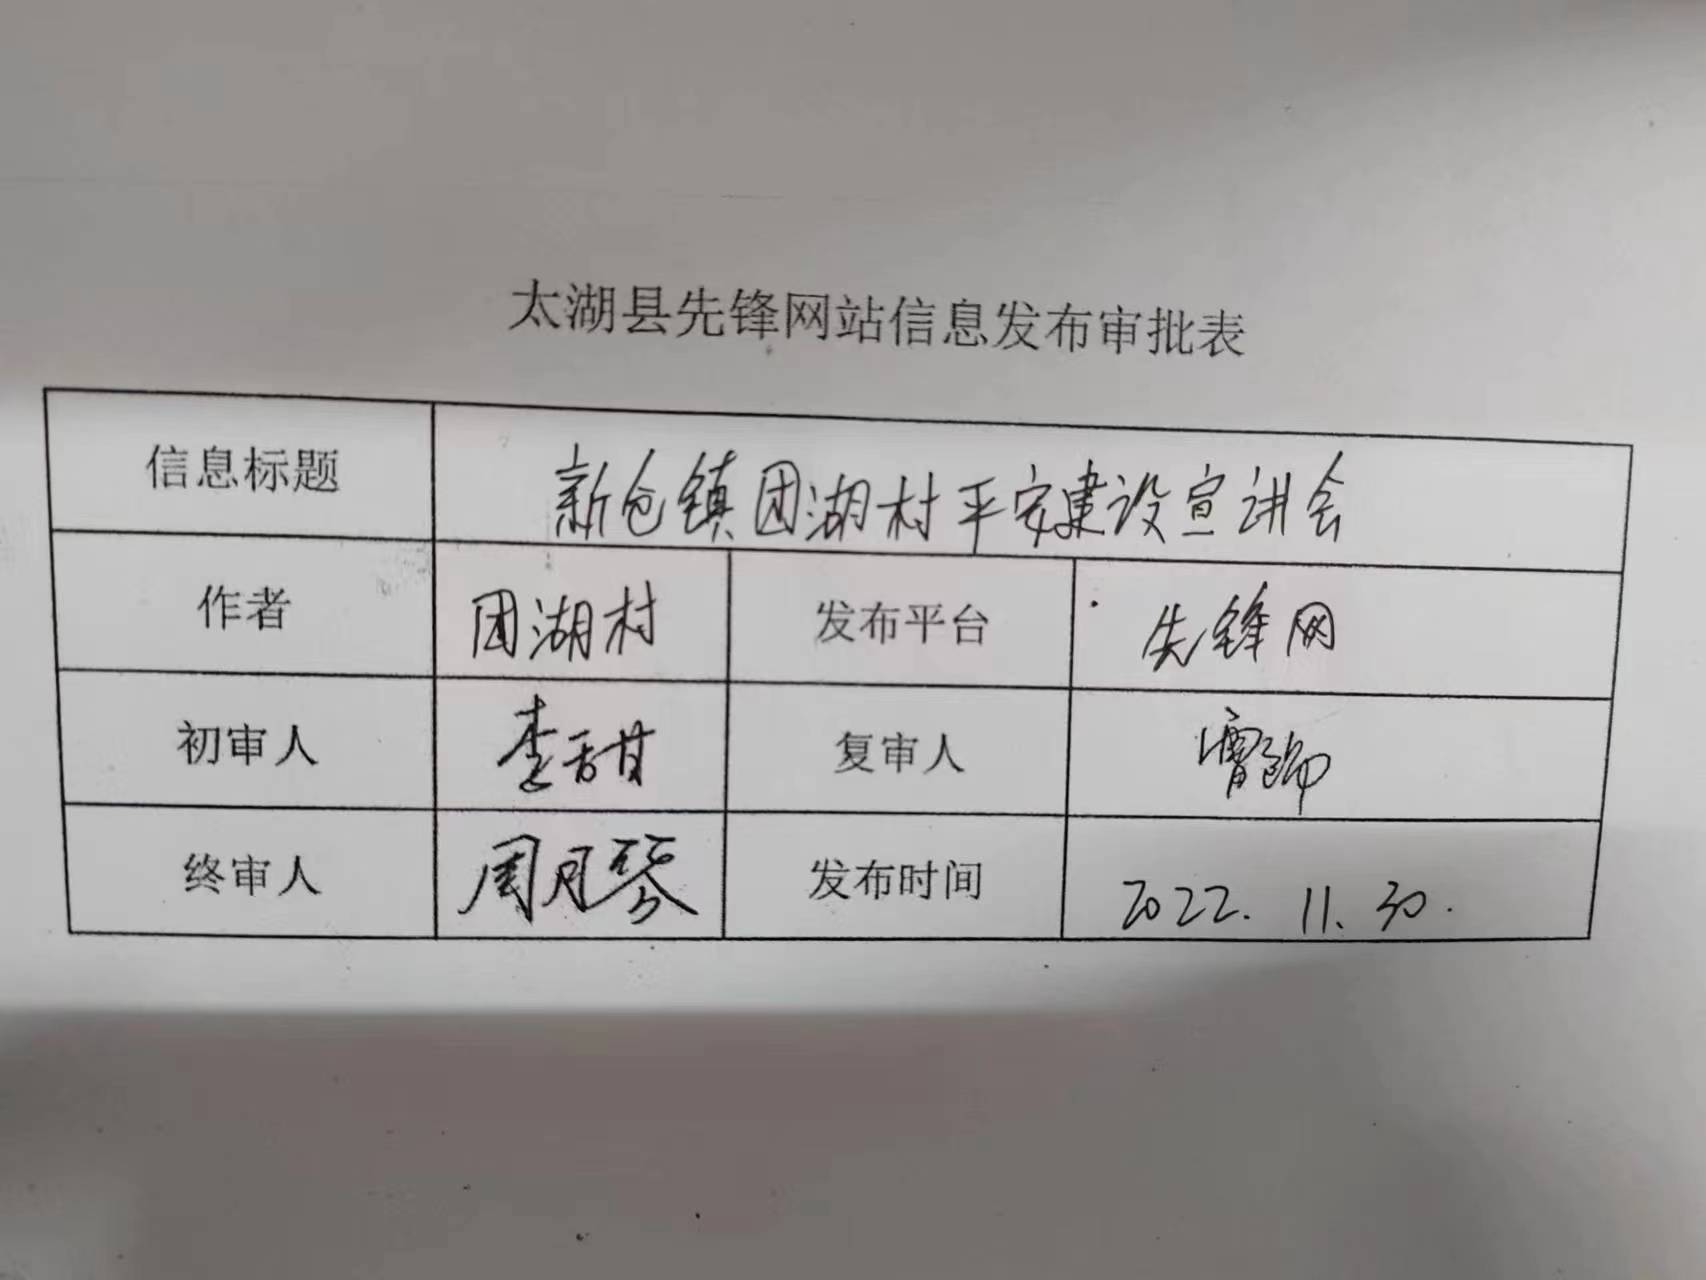 太湖县先锋网站信息发布审批表
信息标题 新仓镇团湖村平安建设宣讲会
作者 团湖村 发布平台 先锋网
初审人 李甜 复审人
终审人 周月琴 发布时间 2022.11.30.